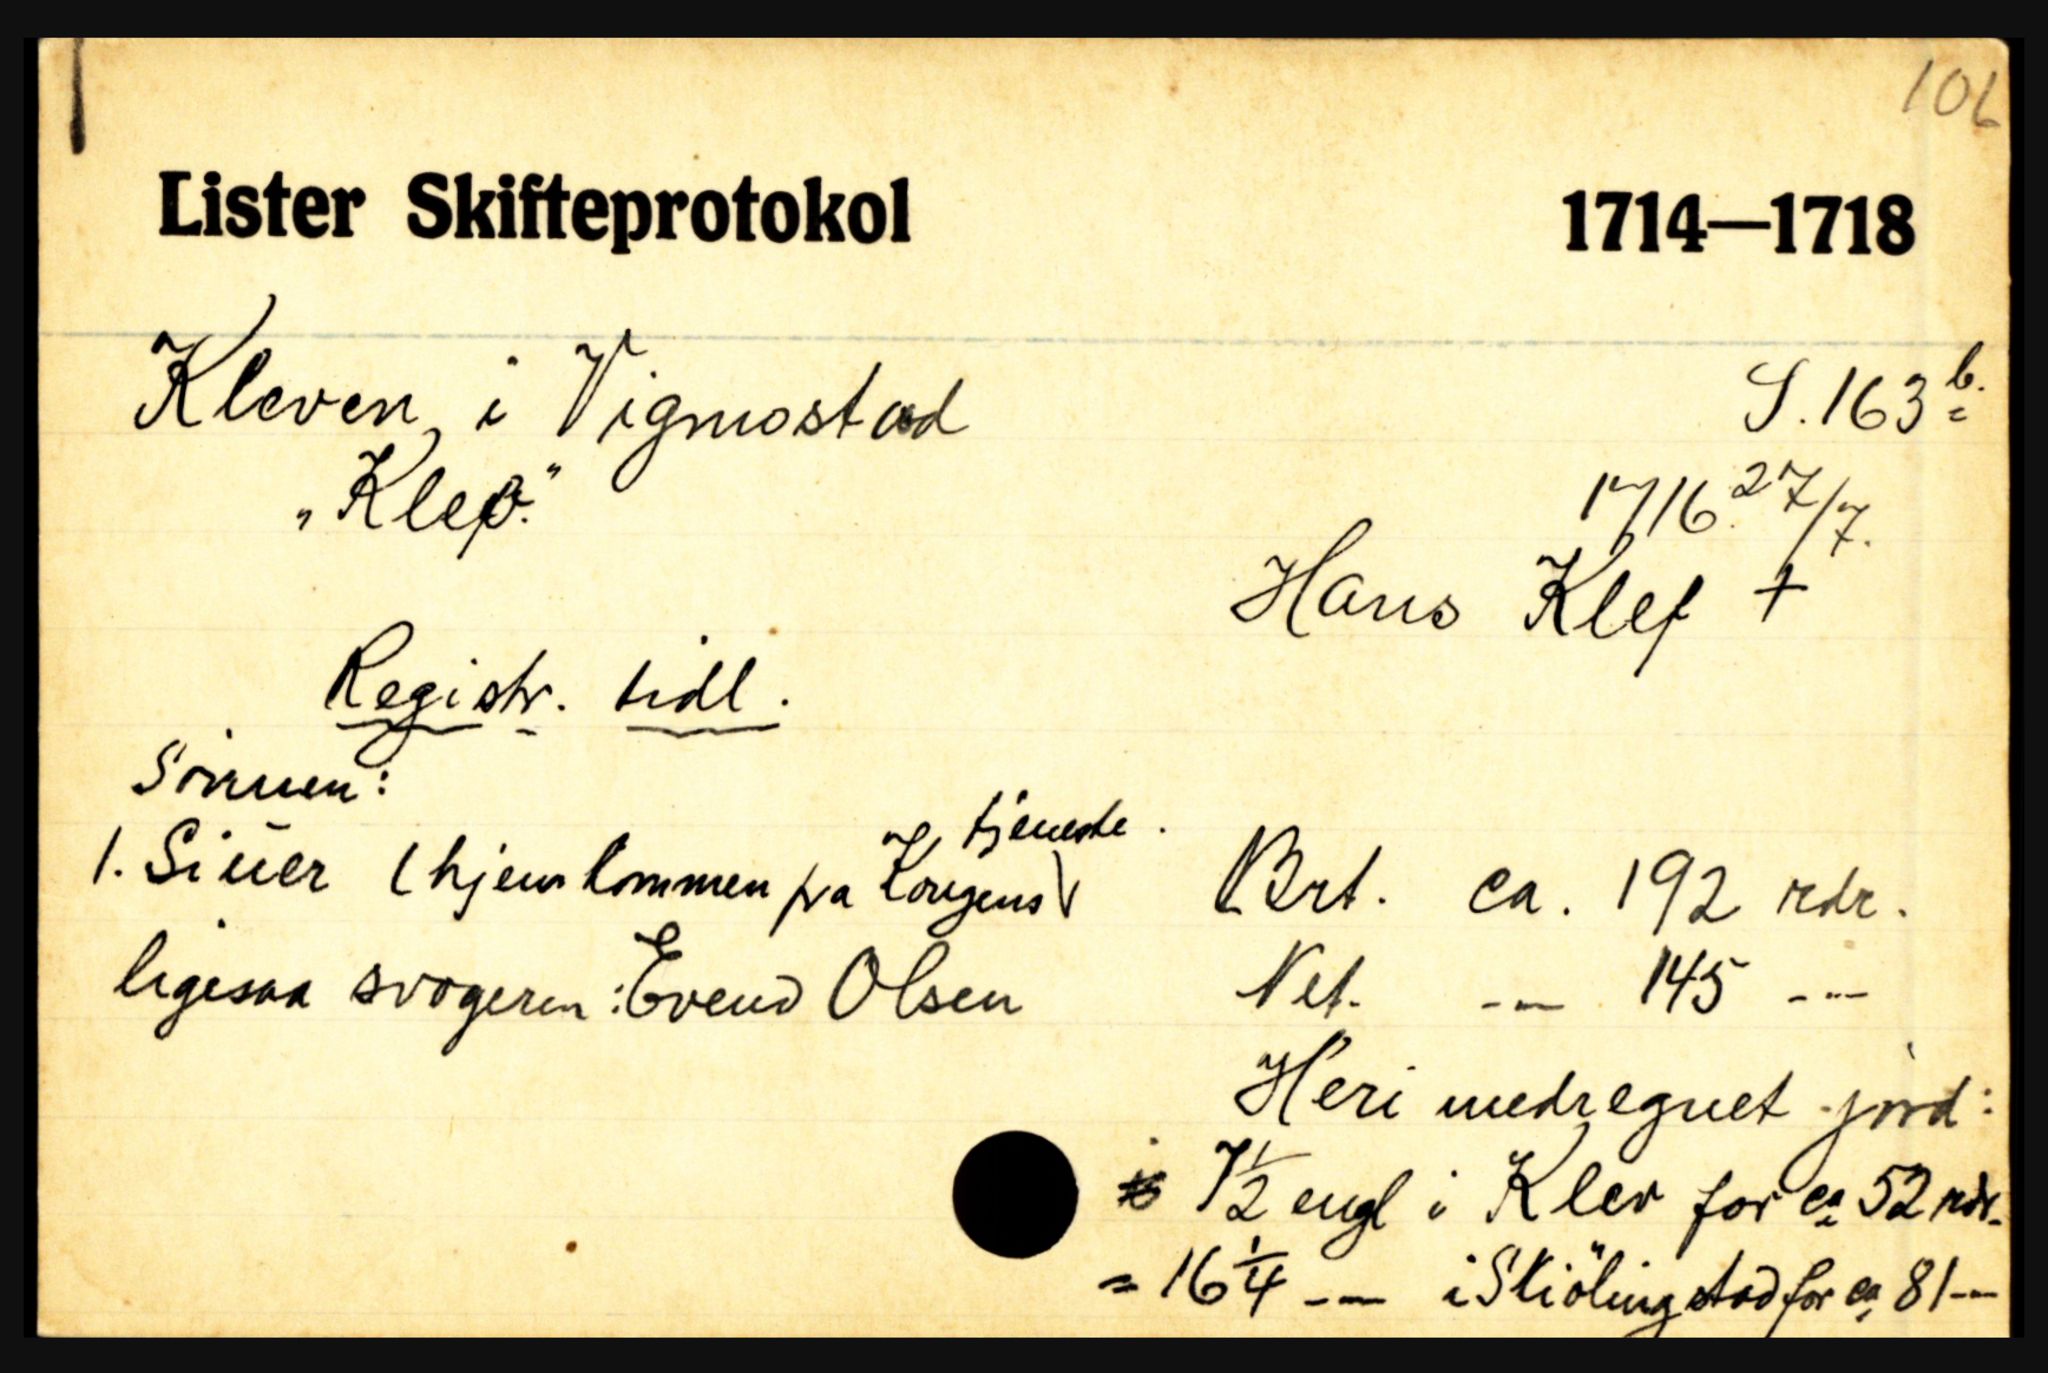 106
Lister Skifteprotokol 1714—1718
Kleven i Vigmostad S. 163 b.
„Klef." 1716. 27/7.
Hans Klef +
Registr. tidl.
Sønnen:
1. Siuer (hjemkommen fra Kongens tjeneste.
ligesaa svogeren: Evend Olsen
Brt. ca. 192 rdr.
Net. -- 145 --
Heri medregnet jord:
7 1/2 engl i Klev for ca 52 rdr.
= 16 1/4 -- i Skiölingstad for ca 81 --